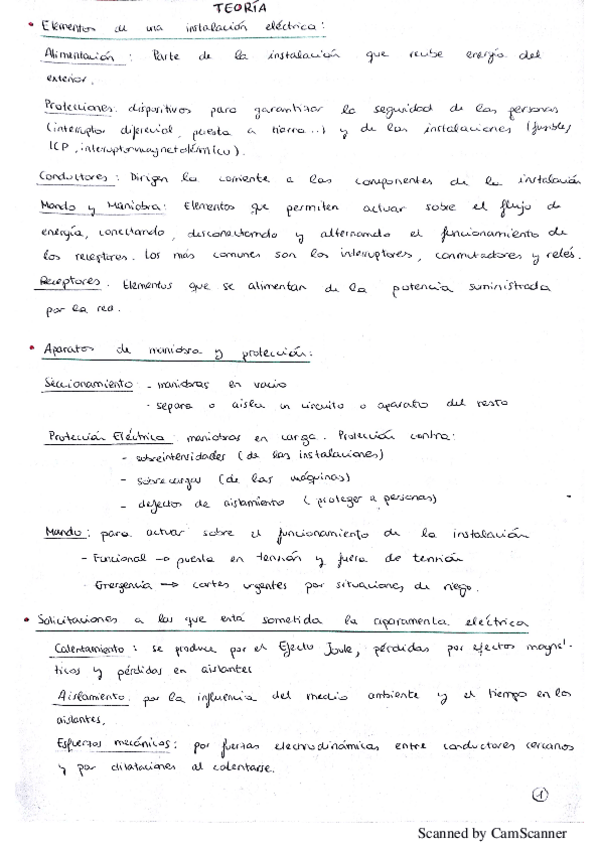 TEORÍA
• Elementos de una instalación eléctrica:
Alimentación: Parte de la instalación que recibe energía del
exterior.
Protecciones: dispositivos para garantizar la seguridad de las personas
(interruptor diferencial, puesta a tierra...) y de las instalaciones (fusible,
ICP, interruptor magnetotérmico).
Conductores: Dirigen la corriente a los componentes de la instalación
Mando y Maniobra: Elementos que permiten actuar sobre el flujo de
energía, conectando, desconectando y alternando el funcionamiento de
los receptores. Los más comunes son los interruptores, conmutadores y relés.
Receptores. Elementos que se alimentan de la potencia suministrada
por la red.
• Aparatos de maniobra y protección:
Seccionamiento - maniobras en vacio
- separa o aisla un circuito o aparato del resto
Protección Eléctrica: maniobras en carga. Protección contra:
- sobreintensidades (de las instalaciones)
- sobrecargas (de las máquinas)
- defectos de aislamiento (proteger a personas)
Mando: para actuar sobre el funcionamiento de la instalación
- Funcional → puesta en tensión y fuera de tensión
- Emergencia → cortes urgentes por situaciones de riesgo.
• Solicitaciones a las que está sometida la aparamenta eléctrica
Calentamiento: se produce por el Efecto Joule, pérdidas por efectos magné-
ticos y pérdidas en aislantes
Aislamiento: por la influencia del medio ambiente y el tiempo en los
aislantes.
Esfuerzos mecánicos: por fuerzas electrodinámicas entre conductores cercanos
y por dilataciones al calentarse.
1
Scanned by CamScanner